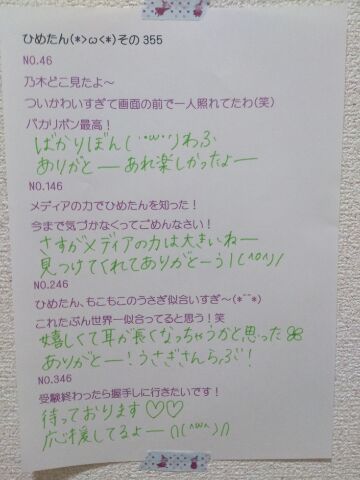 ひめたん(*>ω<*)その355
NO.46
乃木どこ見たよ～
ついかわいすぎて画面の前で一人照れてたわ(笑)
バカリボン最高！
ばかりぼん(˙ºωº˙)わふ
ありがとーーあれ楽しかったよー
NO.146
メディアの力でひめたんを知った！
今まで気づかなくってごめんなさい！
さすがメディアの力は大きいねー
見つけてくれてありがとーう！(^o^)/
NO.246
ひめたん、もこもこのうさぎ似合いすぎ～(*˘˘*)
これたぶん世界一似合ってると思う！笑
嬉しくて耳が長くなっちゃうかと思った
ありがとー！うさぎさんらぶ！
NO.346
受験終わったら握手しに行きたいです！
待っております♡♡
応援してるよー∩(^ω^)∩